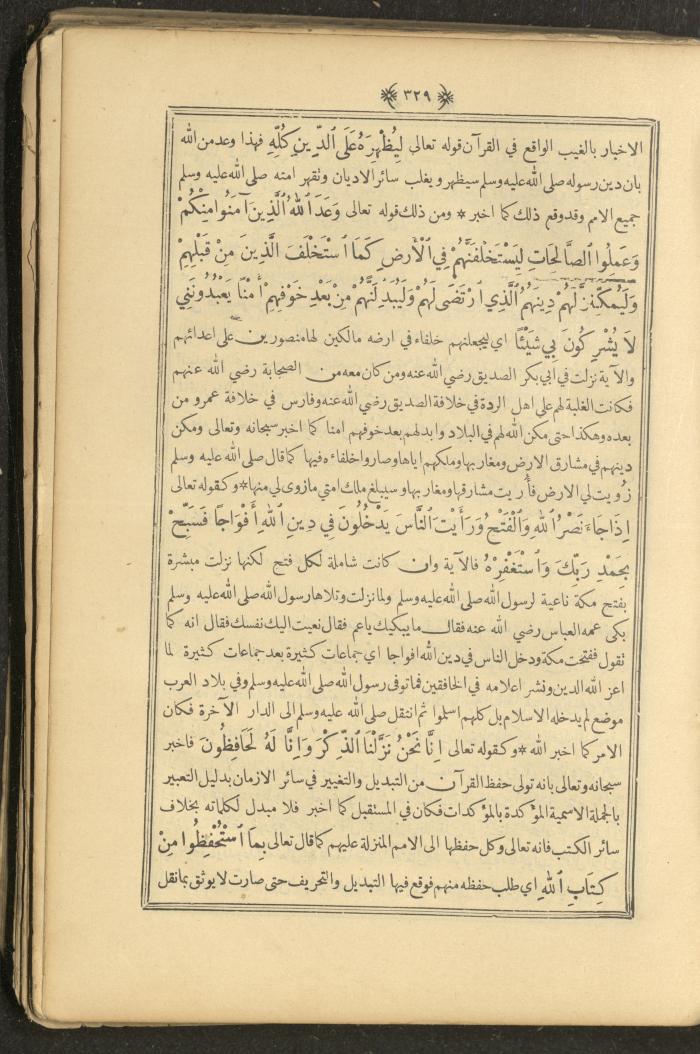 ٣٢٩
الاخبار بالغيب الواقع في القرآن قوله تعالى لِيُظْهِرَهُ عَلَى ٱلدِّينِ كُلِّهِ فهذا وعد من الله
بان دين رسوله صلى الله عليه وسلم سيظهر ويغلب سائر الاديان وتقهر امته صلى الله عليه وسلم
جميع الامم وقد وقع ذلك كما اخبر * ومن ذلك قوله تعالى وَعَدَ ٱللهُ ٱلَّذِينَ آمَنُوا مِنْكُمْ
وَعَمِلُوا ٱلصَّالِحَاتِ لَيَسْتَخْلِفَنَّهُمْ فِي ٱلْأَرْضِ كَمَا ٱسْتَخْلَفَ ٱلَّذِينَ مِنْ قَبْلِهِمْ
وَلَيُمَكِّنَنَّ لَهُمْ دِينَهُمُ ٱلَّذِي ٱرْتَضَى لَهُمْ وَلَيُبَدِّلَنَّهُمْ مِنْ بَعْدِ خَوْفِهِمْ أَمْنًا يَعْبُدُونَنِي
لَا يُشْرِكُونَ بِي شَيْئًا اي ليجعلنهم خلفاء في ارضه مالكين لها منصورين على اعدائهم
والآية نزلت في ابي بكر الصديق رضي الله عنه ومن كان معه من الصحابة رضي الله عنهم
فكانت الغلبة لهم على اهل الردة في خلافة الصديق رضي الله عنه وفارس في خلافة عمرو من
بعده وهكذا حتى مكن الله لهم في البلاد وابدلهم بعد خوفهم امنا كما اخبر سبحانه وتعالى ومكن
دينهم في مشارق الارض ومغاربها وملكهم اياها وصاروا خلفاءه فيها كما قال صلى الله عليه وسلم
زُويت لي الارض فأُريت مشارقها ومغاربها وسيبلغ ملك امتي مازوى لي منها * وكقوله تعالى
إِذَا جَاءَ نَصْرُ ٱللهِ وَٱلْفَتْحُ وَرَأَيْتَ ٱلنَّاسَ يَدْخُلُونَ فِي دِينِ ٱللهِ أَفْوَاجًا فَسَبِّحْ
بِحَمْدِ رَبِّكَ وَٱسْتَغْفِرْهُ فالآية وان كانت شاملة لكل فتح لكنها نزلت مبشرة
بفتح مكة ناعية لرسول الله صلى الله عليه وسلم ولما نزلت وتلاها رسول الله صلى الله عليه وسلم
بكى عمه العباس رضي الله عنه فقال ما يبكيك ياعم فقال نعيت اليك نفسك فقال انه كما
تقول ففتحت مكة ودخل الناس في دين الله افواجا اي جماعات كثيرة بعد جماعات كثيرة لما
اعز الله الدين ونشر اعلامه في الخافقين فما توفى رسول الله صلى الله عليه وسلم وفي بلاد العرب
موضع لم يدخله الاسلام بل كلهم اسلموا ثم انتقل صلى الله عليه وسلم الى الدار الآخرة فكان
الامر كما اخبر الله * وكقوله تعالى إِنَّا نَحْنُ نَزَّلْنَا ٱلذِّكْرَ وَإِنَّا لَهُ لَحَافِظُونَ فاخبر
سبحانه وتعالى بانه تولى حفظ القرآن من التبديل والتغيير في سائر الازمان بدليل التعبير
بالجملة الاسمية المؤكدة بالمؤكدات فكان في المستقبل كما اخبر فلا مبدل لكلماته بخلاف
سائر الكتب فانه تعالى وكل حفظها الى الامم المنزلة عليهم كما قال تعالى بِمَا ٱسْتُحْفِظُوا مِنْ
كِتَابِ ٱللهِ اي طلب حفظه منهم فوقع فيها التبديل والتحريف حتى صارت لا يوثق بما نقل